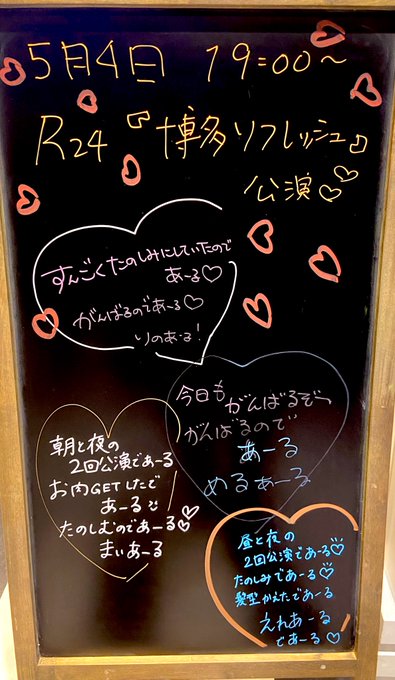 5月4日 19:00〜
R24『博多リフレッシュ』
公演♡♡
すんごくたのしみにしていたので
あーる♡
がんばるのであーる♡
りのあーる!
今日も がんばるぞー
がんばるので
あーる
めるあーる
朝と夜の
2回公演であーる
お肉GETしたで
あーる
たのしむのであーる♡♡
まいあーる
昼と夜の
2回公演であーる♡
たのしみであーる♡
髪型かえたであーる
えれあーる
であーる♡